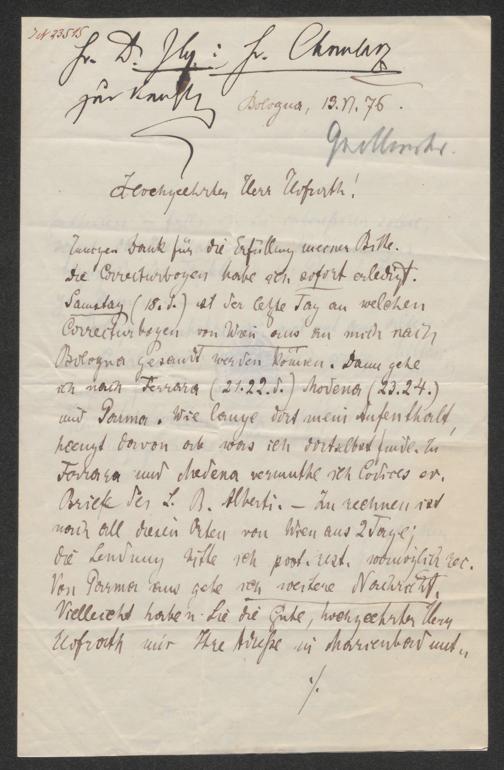 JN 23515
Hr. D. Ilg : Hr. Chmelarz
zur
Bologna, 13. VI. 76.
Hochgeehrter Herr Hofrath!
Innigen Dank für die Erfüllung meiner Bitte.
Die Correcturbogen habe ich sofort erledigt.
Samstag (18. d.) ist der letzte Tag an welchem
Correcturbogen von Wien aus an mich nach
Bologna gesandt werden können. Dann gehe
ich nach Ferrara (21. 22. d.) Modena (23. 24.)
und Parma. Wie lange dort mein Aufenthalt,
haengt davon ab was ich dortselbst finde. In
Ferrara und Modena vermuthe ich Codices od.
Briefe des L. B. Alberti. – Zu rechnen ist
nach all diesen Orten von Wien aus 2 Tage;
die Sendung bitte ich post. rest. womöglich rec.
Von Parma aus gebe ich weitere Nachricht.
Vielleicht haben Sie die Güte, hochgeehrter Herr
Hofrath mir Ihre Adresse in Marienbad mit„
./.